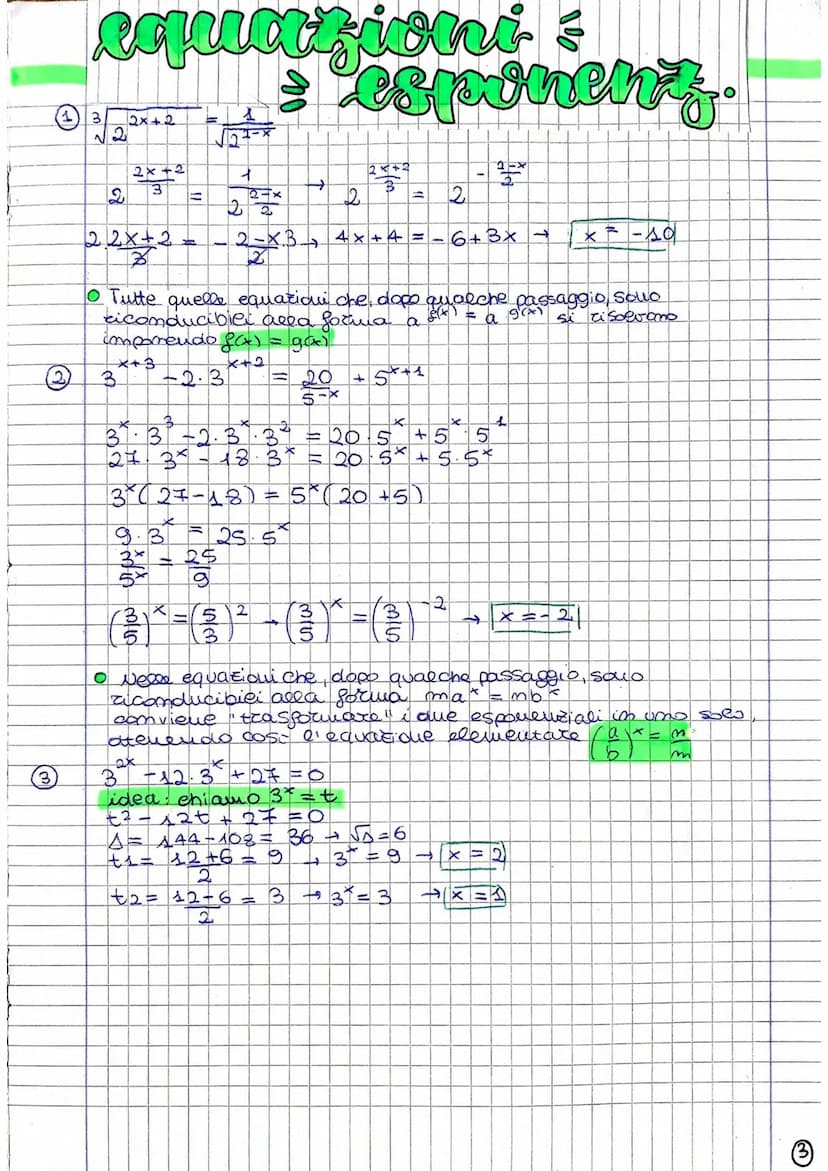 equazioni
esponenz.
① ∛2^(2x+2) = 1/√2^(2-x)
2^((2x+2)/3) = 1/2^((2-x)/2) → 2^((2x+2)/3) = 2^(-(2-x)/2)
2·(2x+2)/3 = -(2-x)/2·3 → 4x+4 = -6+3x → x = -10
Tutte quelle equazioni che, dopo qualche passaggio, sono
riconducibili alla forma a^f(x) = a^g(x) si risolvono
imponendo f(x) = g(x)
② 3^(x+3) - 2·3^(x+2) = 20/5^(-x) + 5^(x+1)
3^x · 3^3 - 2·3^x·3^2 = 20·5^x + 5^x·5^1
27·3^x - 18·3^x = 20·5^x + 5·5^x
3^x(27-18) = 5^x(20+5)
9·3^x = 25·5^x
3^x/5^x = 25/9
(3/5)^x = (5/3)^2 → (3/5)^x = (3/5)^-2 → x = -2
Nelle equazioni che, dopo qualche passaggio, sono
riconducibili alla forma ma^x = nb^x
conviene "trasformare" i due esponenziali in uno solo,
ottenendo così l'equazione elementare (a/b)^x = n/m
③ 3^2x - 12·3^x + 27 = 0
idea: chiamo 3^x = t
t² - 12t + 27 = 0
Δ = 144 - 108 = 36 → √Δ = 6
t1 = (12+6)/2 = 9 → 3^x = 9 → x = 2
t2 = (12-6)/2 = 3 → 3^x = 3 → x = 1
③